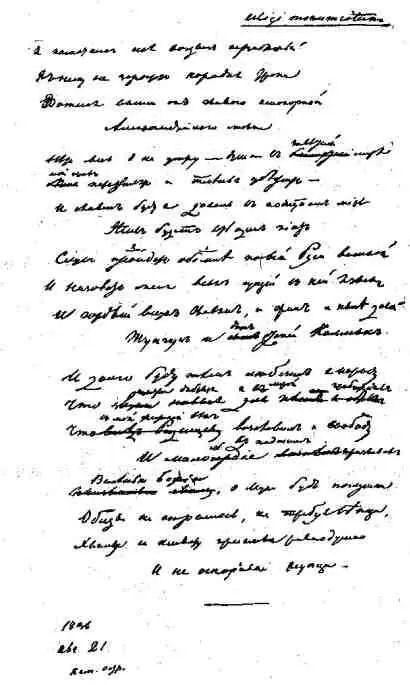 exegi monumentum
Я памятник себе воздвиг нерукотворный
К нему не заростет народная тропа
Вознесся выше он главою непокорной
Александрийского столпа
Нет весь я не умру — душа в заветной лире
Мой прах переживет и тленья убежит —
И славен буду я доколь в подлунном мире
Жив будет хоть один пиит
Слух обо мне пройдет по всей Руси великой
И назовет меня всяк сущий в ней язык
И гордый внук славян, и финн, и ныне дикой
Тунгуз и друг степей калмык
И долго буду тем любезен я народу
Что чувства добрые я лирой пробуждал
Что в мой жестокий век восславил я свободу
И милость к падшим призывал
Веленью божию, о муза, будь послушна
Обиды не страшась, не требуя венца,
Хвалу и клевету приемли равнодушно
И не оспоривай глупца —
1836
авг 21
Кам. остр.